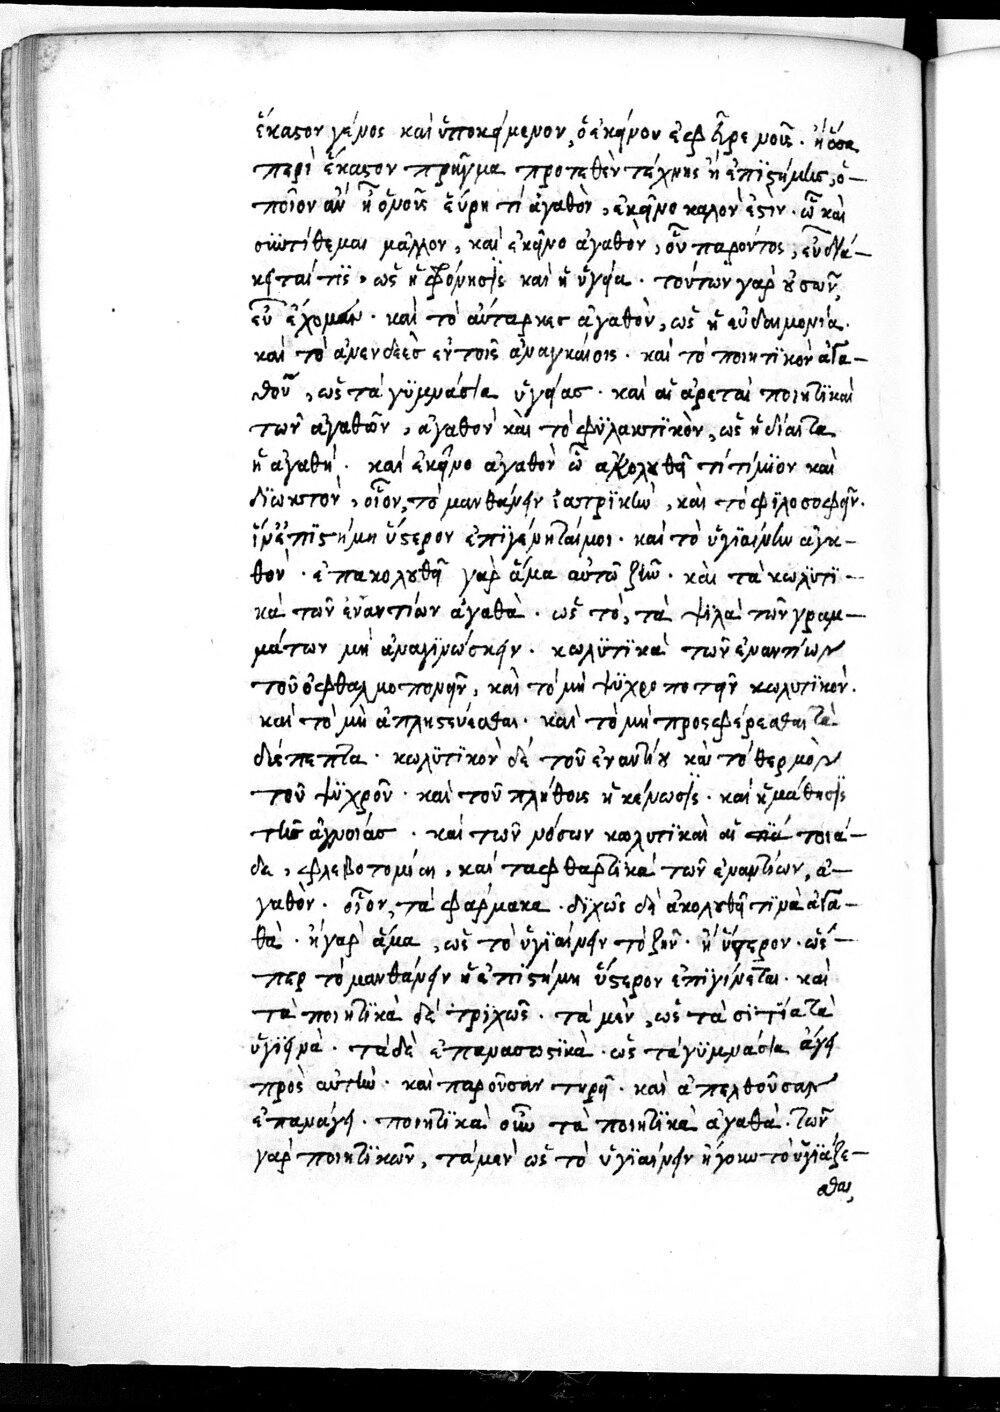 ἕκαστον γένος καὶ ὑποκείμενον, ὃ ἐκεῖνον ἐφεῦρε νοῦς· ἢ ὅσα
περὶ ἕκαστον πρᾶγμα προτεθὲν τέχνης ἢ ἐπιστήμης, ὁ-
ποῖον ἂν ἢ ὁ νοῦς εὕρῃ τί ἀγαθὸν, ἐκεῖνο καλόν ἐστὶν· ᾧ καὶ
συντίθεμαι μᾶλλον, καὶ ἐκεῖνο ἀγαθὸν, οὗ παρόντος, εὖ διά-
κειταί τις, ὡς ἡ φρόνησις καὶ ἡ ὑγεία· τούτων γὰρ οὐσῶν,
εὖ ἔχομεν· καὶ τὸ αὔταρκες ἀγαθὸν, ὡς ἡ εὐδαιμονία·
καὶ τὸ ἀνενδεὲς ἐν τοῖς ἀναγκαίοις· καὶ τὸ ποιητικὸν ἀγα-
θοῦ, ὡς τὰ γυμνάσια ὑγείας· καὶ αἱ ἀρεταὶ ποιητικαὶ
τῶν ἀγαθῶν, ἀγαθὸν καὶ τὸ φυλακτικὸν, ὡς ἡ δίαιτα
ἡ ἀγαθή· καὶ ἐκεῖνο ἀγαθὸν ᾧ ἀκολουθεῖ τὶ τίμιον καὶ
διωκτὸν, οἷον, τὸ μανθάνειν ἰατρικὴν, καὶ τὸ φιλοσοφεῖν·
ἵν' ἐπιστήμη ὕστερον ἐπιγένηταί μοι· καὶ τὸ ὑγιαίνειν ἀγα-
θὸν· ἐπακολουθεῖ γὰρ ἅμα αὐτῷ ζωὴ· καὶ τὰ κωλυτι-
κὰ τῶν ἐναντίων ἀγαθὰ· ὡς τὸ, τὰ ψιλὰ τῶν γραμ-
μάτων μὴ ἀναγινώσκειν· κωλυτικὰ τῶν ἐναντίων
τοῦ ὀφθαλμοπονεῖν, καὶ τὸ μὴ ψυχροποτεῖν κωλυτικὸν·
καὶ τὸ μὴ ἀπληστεύεσθαι· καὶ τὸ μὴ προσφέρεσθαι τὰ
διέπεπτα· κωλυτικὸν δὲ τοῦ ἐναντίου καὶ τὸ θερμὸν
τοῦ ψυχροῦ· καὶ τοῦ πλήθους ἡ κένωσις· καὶ ἡ μάθησις
τῆς ἀγνοίας· καὶ τῶν νόσων κωλυτικαὶ αἱ τοιαί-
δε, φλεβοτομίαι, καὶ τὰ φθαρτικὰ τῶν ἐναντίων, ἀ-
γαθὸν· οἷον, τὰ φάρμακα· διχῶς δὲ ἀκολουθεῖ τινὰ ἀγα-
θὰ· ἢ γὰρ ἅμα, ὡς τὸ ὑγιαίνειν τὸ ζῆν· ἢ ὕστερον· ὥς-
περ τὸ μανθάνειν ἡ ἐπιστήμη ὕστερον ἐπιγίνεται· καὶ
τὰ ποιητικὰ δὲ τριχῶς· τὰ μὲν, ὡς τὰ σιτία τὰ
ὑγιεινὰ· τὰ δὲ ἐπανασωστικὰ· ὡς τὰ γυμνάσια ἄγει
πρὸς αὐτὴν· καὶ παροῦσαν τηρεῖ· καὶ ἀπελθοῦσαν
ἐπανάγει· ποιητικὰ οὖν τὰ ποιητικὰ ἀγαθὰ· τῶν
γὰρ ποιητικῶν, τὰ μὲν ὡς τὸ ὑγιαίνειν ἤγουν τὸ ὑγιάζε-
σθαι,